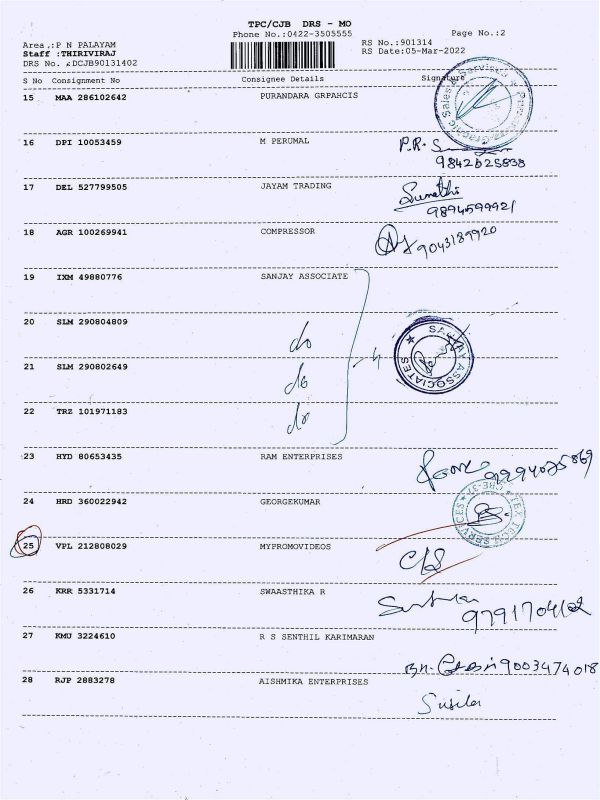 TPC/CJB DRS - MO
Phone No.:0422-3505555
Page No.:2
Area .:P N PALAYAM
Staff :THIRIVIRAJ
DRS No. :DCJB90131402
RS No.:901314
RS Date:05-Mar-2022
S No Consignment No Consignee Details Signature
15 MAA 286102642 PURANDARA GRPAHCIS
16 DPI 10053459 M PERUMAL P.R.
9842625838
17 DEL 527799505 JAYAM TRADING Sumathi
9894599921
18 AGR 100269941 COMPRESSOR 9043189920
19 IXM 49880776 SANJAY ASSOCIATE
20 SLM 290804809 do
SANJAY ASSOCIATES
21 SLM 290802649 do
4
22 TRZ 101971183 do
23 HYD 80653435 RAM ENTERPRISES
24 HRD 360022942 GEORGEKUMAR
TEX TECH SERVICES CBE-37
25 VPL 212808029 MYPROMOVIDEOS
26 KRR 5331714 SWAASTHIKA R
27 KMU 3224610 R S SENTHIL KARIMARAN
9003474018
28 RJP 2883278 AISHMIKA ENTERPRISES
Susila